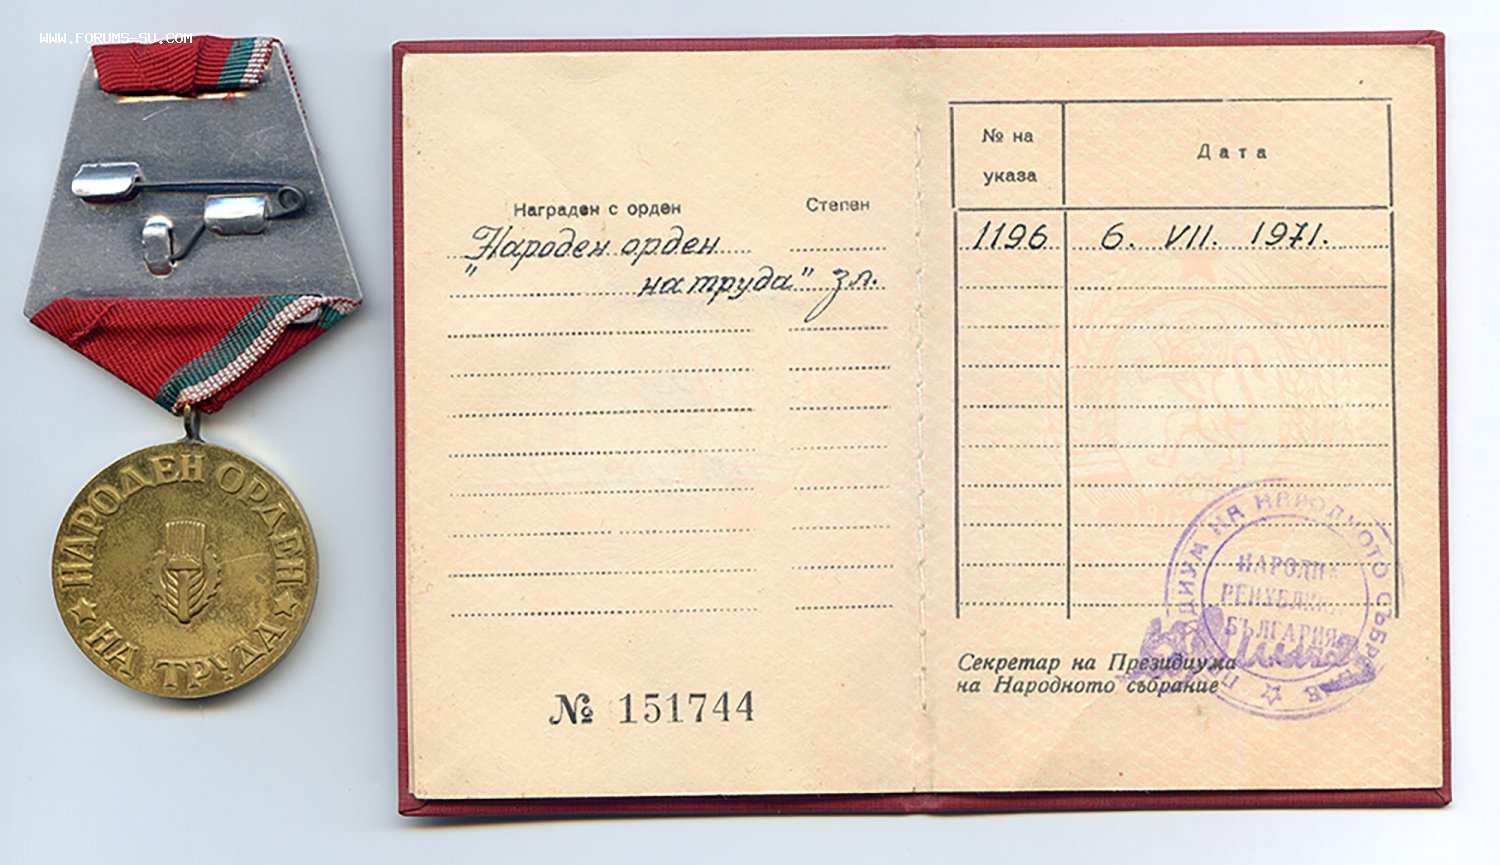 WWW.FORUMS-SU.COM
НАРОДЕН ОРДЕН
НА ТРУДА
Награден с орден Степен
"Народен орден
на труда" зл.
№ 151744
№ на указа Дата
1196 6. VII. 1971.
Секретар на Президиума
на Народното събрание
ПРЕЗИДИУМ НА НАРОДНОТО СЪБРАНИЕ
НАРОДНА
РЕПУБЛИКА
БЪЛГАРИЯ